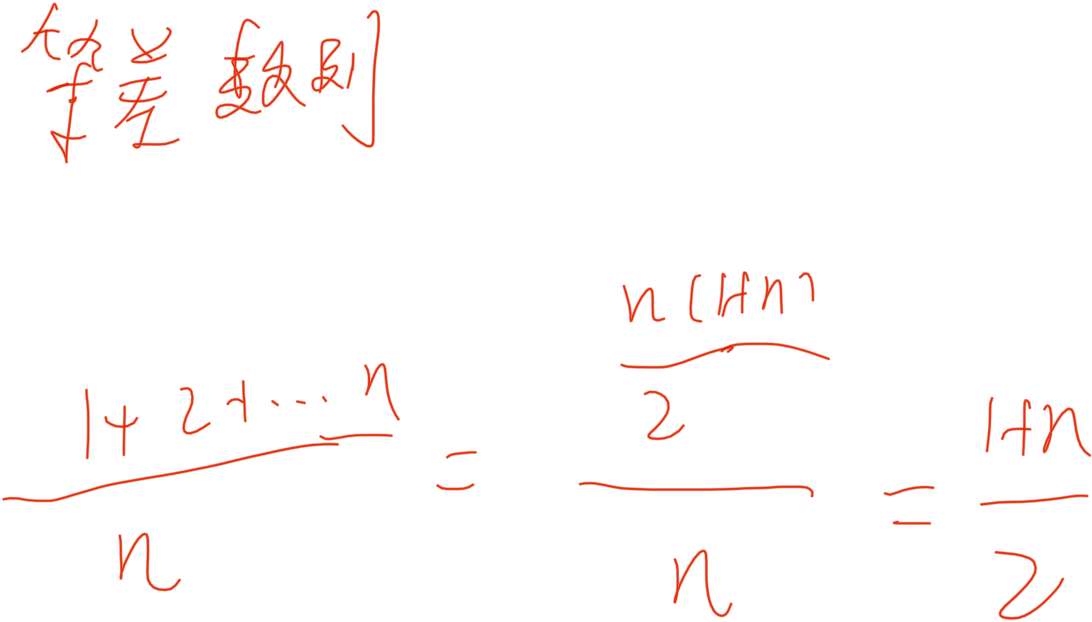 等差数列
(1+2+...n)/n = (n(1+n)/2)/n = (1+n)/2